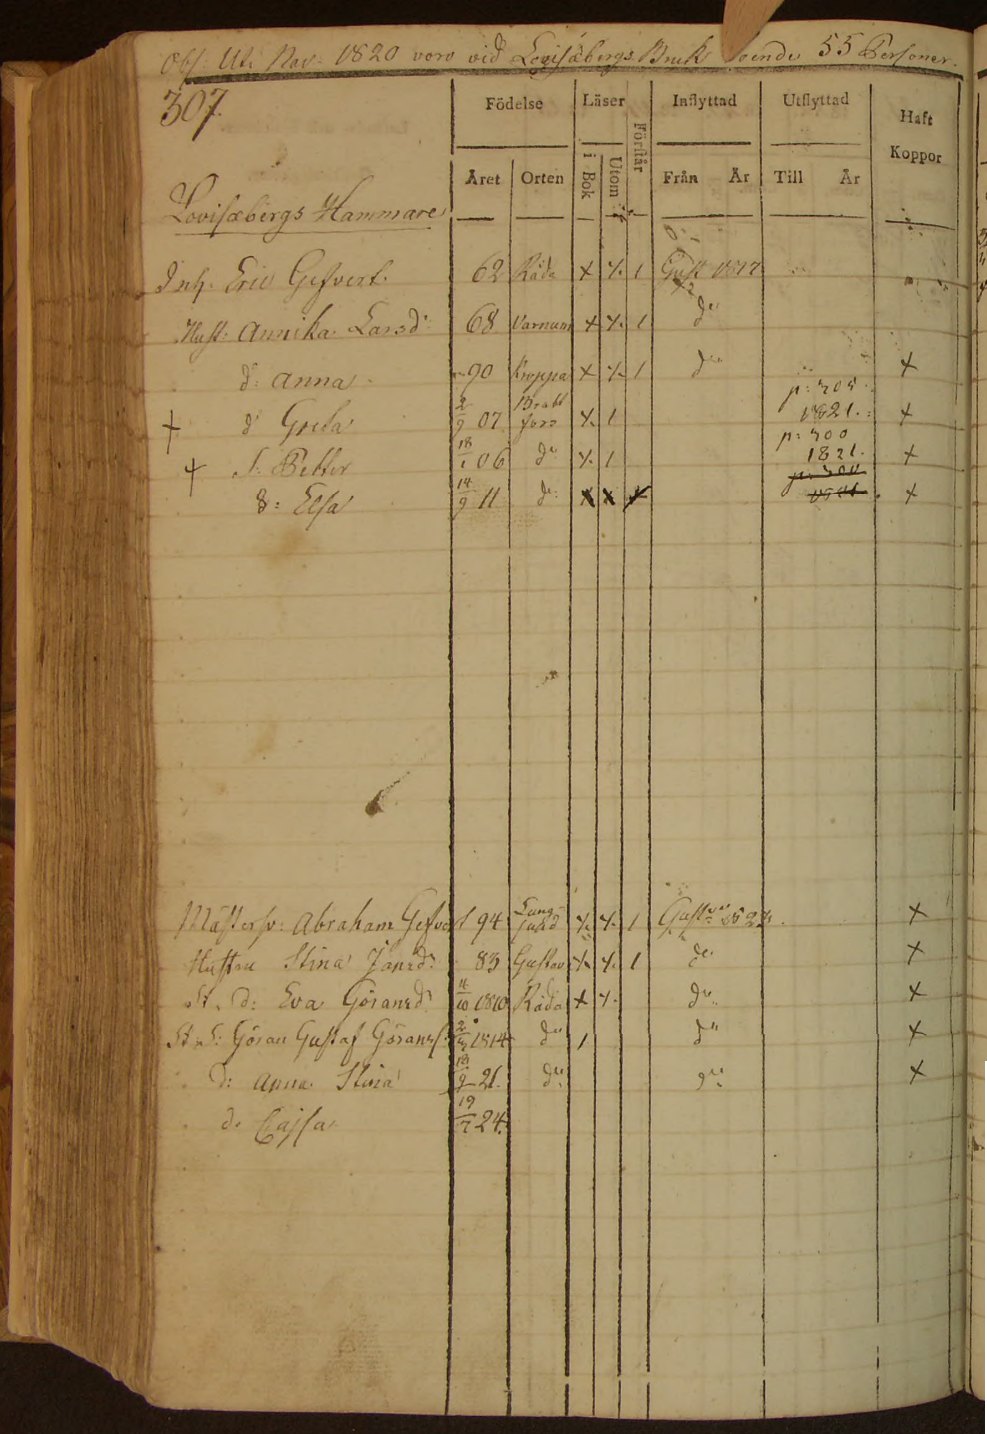 Obs: Uti Nov: 1820 voro vid Lovisæbergs Bruk boende 55 Personer.
307.
Födelse Läser Förstår Inflyttad Utflyttad Haft Koppor
Året Orten i Bok Utom Från År Till År
Lovisæbergs Hammare
Inh. Eric Gefvert. 62 Råda x x. 1 Gust 1817
Hust: Annika Larsd: 68 Varnum x x. 1 do
d: Anna 90 Kroppa x x. 1 do x
p: 305
† d Greta 2/9 07 Bratt fors x. 1 1821. x
p: 300
† S: Petter 18/1 06 do x. 1 1821. x
p: 300
d: Elsa 14/9 11 do x x x x
Mästersv: Abraham Gefvert 94 Ljusd x. x. 1 Gust x
Hustru Stina Jansd: 83 Gustav x. x. 1 do x
St. d: Eva Göransd: 11/10 1810 Råda x x. do x
St. S: Göran Gustaf Görans: 1814 do 1 do x
d: Anna Stina 21. do do x
d: Cajsa 19/7 24.